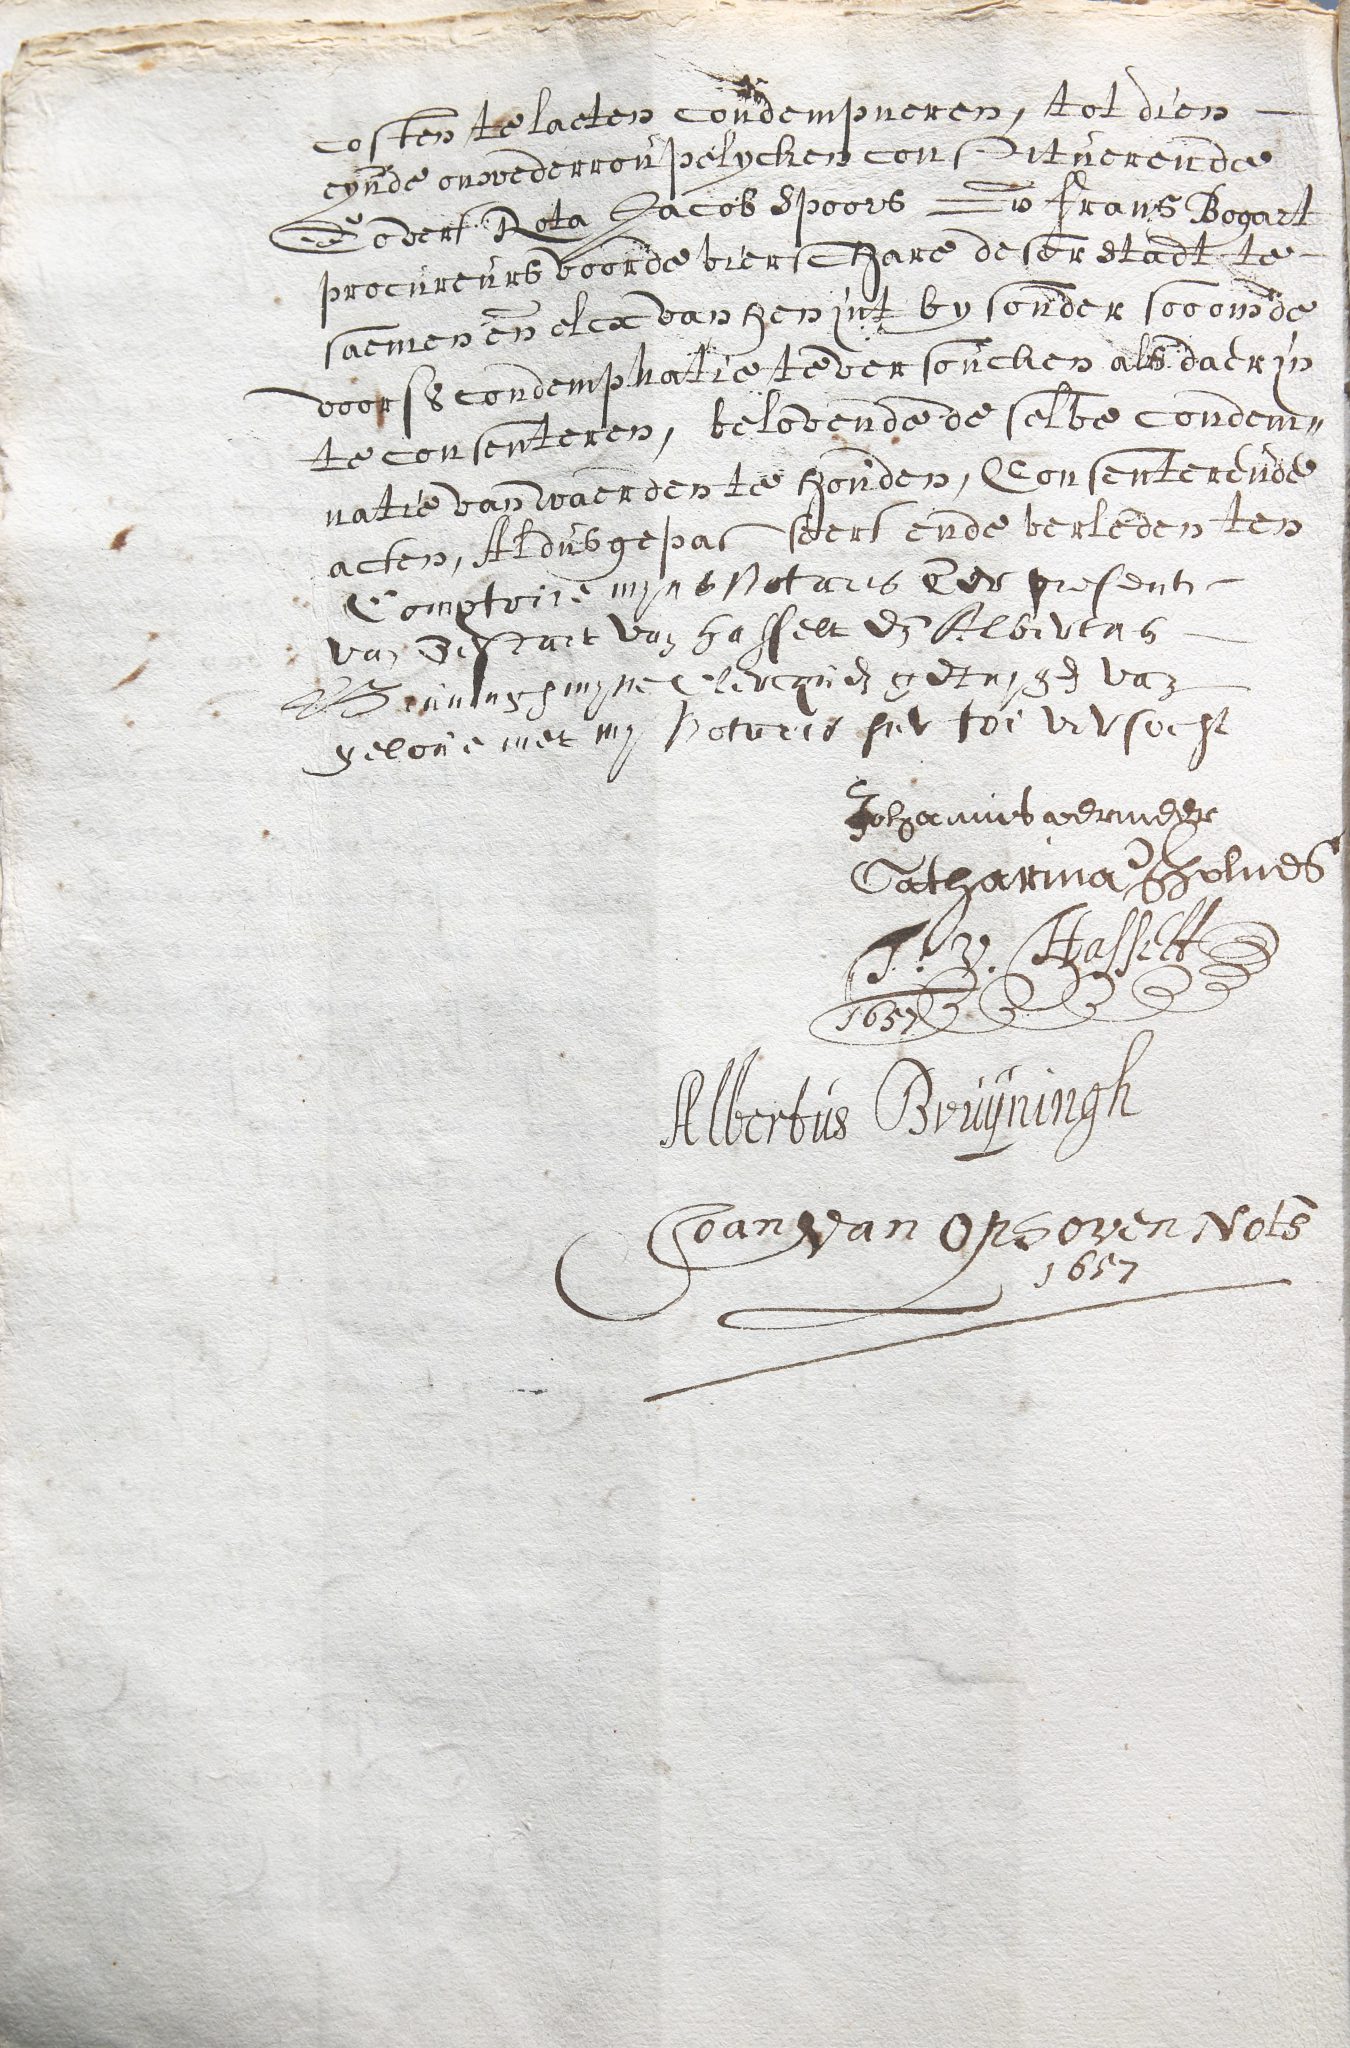 costen te laeten condempneren, tot dien
eynde onwederroupelycken constituerende
Govert Rota Jacob Spoors en Frans Bogart
procureurs voor de vierschare deser stadt te
saemen en elcx van hen int bysonder soo om de
voors condemphatie te versoucken als daer in
te consenteren, belovende de selve condem„
natie van waerden te houden, Consenterende
acten, Aldus gepasseert ende verleden ten
Comptoire mijns Notaris ter presentie
van van Hasselt en Albertus
Bruningh mijne Clercqen getuygen van
gelove met mij Notaris hier toe versocht
Johannis vermeer
Catharina Bolnes
J. V. Hasselt
1657
Albertus Bruyningh
Joan van Ophoven Nots
1657